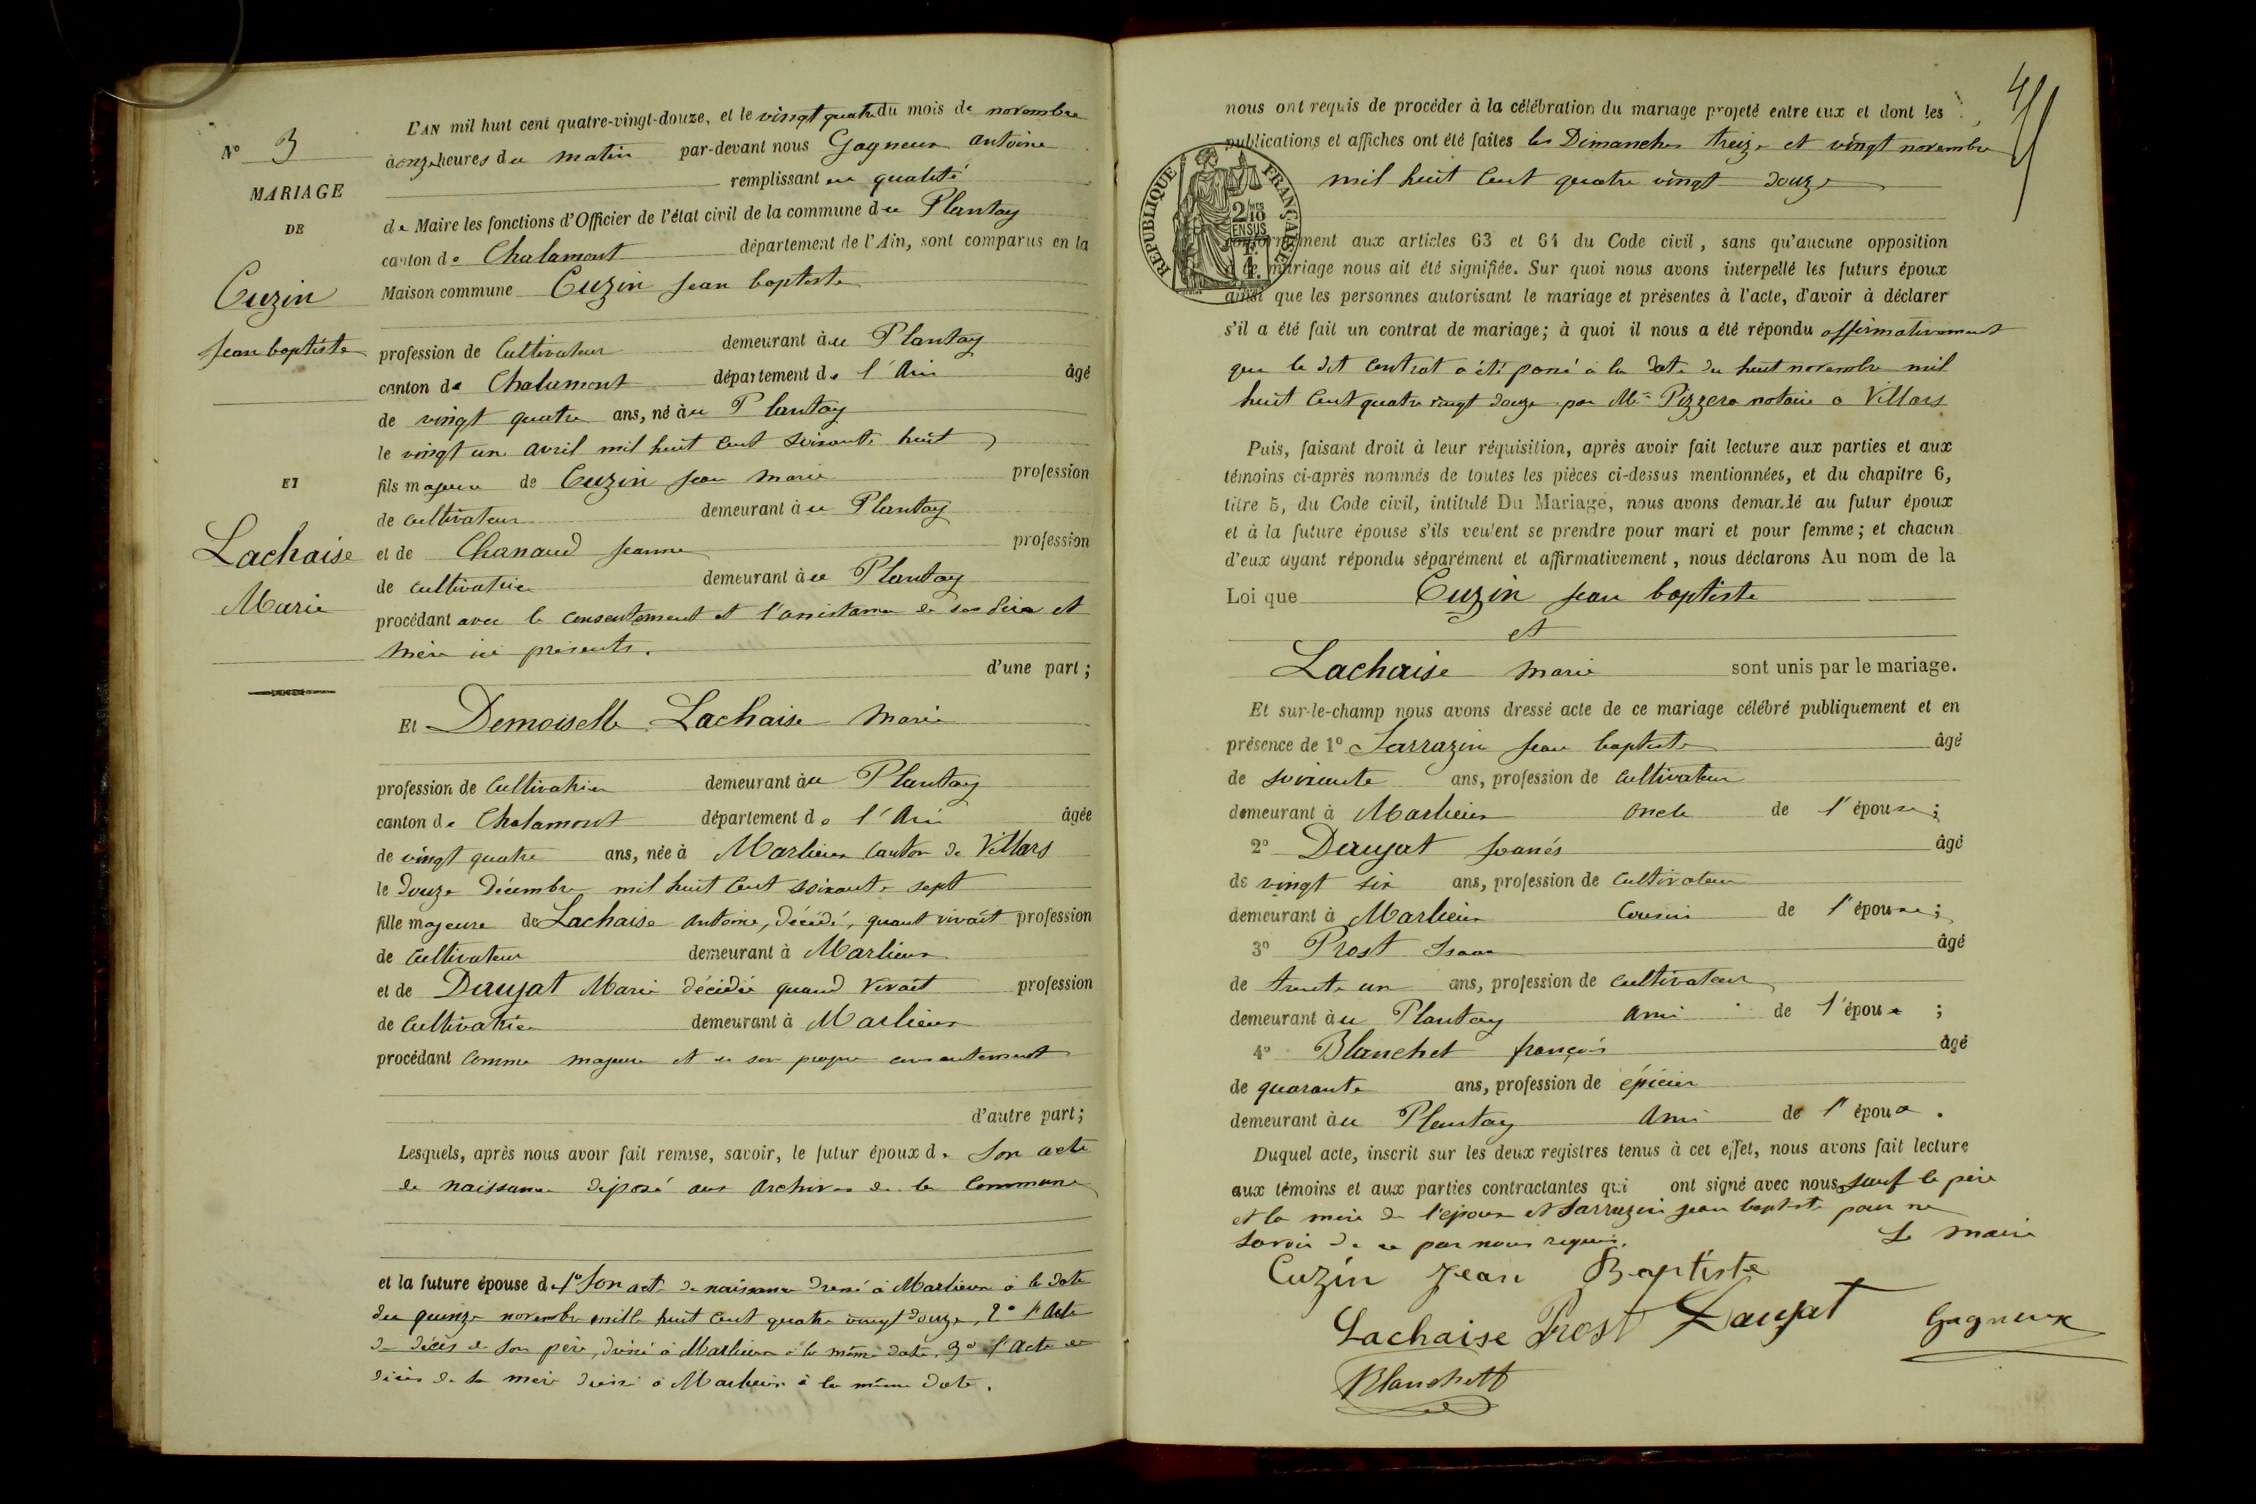 N° 3
MARIAGE
DE
Cuzin
Jean baptiste
ET
Lachaise
Marie
L'AN mil huit cent quatre-vingt-douze, et le vingt quatre du mois de novembre
à onze heures du matin par-devant nous Gagneux antoine
remplissant en qualité
de Maire les fonctions d'Officier de l'état civil de la commune du Plantay
canton de Chalamont département de l'Ain, sont comparus en la
Maison commune Cuzin Jean baptiste
profession de Cultivateur demeurant à u Plantay
canton de Chalamont département de l'Ain âgé
de vingt quatre ans, né à u Plantay
le vingt un avril mil huit cent soixante huit
fils majeur de Cuzin Jean Marie profession
de cultivateur demeurant à u Plantay
et de Chanaud Jeanne profession
de cultivatrice demeurant à u Plantay
procédant avec le consentement et l'assistance de ses père et
mère ici présents.
d'une part;
Et Demoiselle Lachaise Marie
profession de Cultivatrice demeurant à u Plantay
canton de Chalamont département de l'Ain âgée
de vingt quatre ans, née à Marlieux canton de Villars
le Douze Décembre mil huit cent soixante sept
fille majeure de Lachaise Antoine, décédé, quant vivait profession
de Cultivateur demeurant à Marlieux
et de Dauyat Marie décédée quand vivait profession
de Cultivatrice demeurant à Marlieux
procédant comme majeure et de son propre consentement
d'autre part;
Lesquels, après nous avoir fait remise, savoir, le futur époux de Son acte
de naissance déposé aux Archives de la Commune
et la future épouse de 1° Son acte de naissance dressé à Marlieux à la date
du quinze novembre mille huit cent quatre vingt douze, 2° l'acte
de décès de son père, dressé à Marlieux à la même date, 3° l'acte de
décès de sa mère dressé à Marlieux à la même date.
nous ont requis de procéder à la célébration du mariage projeté entre eux et dont les
publications et affiches ont été faites les Dimanches treize et vingt novembre
mil huit cent quatre vingt douze
RÉPUBLIQUE FRANÇAISE
2/10
EN SUS
conformément aux articles 63 et 64 du Code civil, sans qu'aucune opposition
à ce mariage nous ait été signifiée. Sur quoi nous avons interpellé les futurs époux
ainsi que les personnes autorisant le mariage et présentes à l'acte, d'avoir à déclarer
s'il a été fait un contrat de mariage; à quoi il nous a été répondu affirmativement
que le dit contrat a été passé à la date du huit novembre mil
huit cent quatre vingt douze par Me Pizzera notaire à Villars
Puis, faisant droit à leur réquisition, après avoir fait lecture aux parties et aux
témoins ci-après nommés de toutes les pièces ci-dessus mentionnées, et du chapitre 6,
titre 5, du Code civil, intitulé Du Mariage, nous avons demandé au futur époux
et à la future épouse s'ils veulent se prendre pour mari et pour femme; et chacun
d'eux ayant répondu séparément et affirmativement, nous déclarons Au nom de la
Loi que Cuzin Jean baptiste
et
Lachaise Marie sont unis par le mariage.
Et sur-le-champ nous avons dressé acte de ce mariage célébré publiquement et en
présence de 1° Sarrazin Jean baptiste âgé
de soixante ans, profession de cultivateur
demeurant à Marlieux oncle de l'épouse;
2° Dauyat Joanés âgé
de vingt six ans, profession de cultivateur
demeurant à Marlieux Cousin de l'épouse;
3° Prost Isaac âgé
de trente un ans, profession de cultivateur
demeurant à u Plantay ami de l'époux;
4° Blanchet françois âgé
de quarante ans, profession de épicier
demeurant à u Plantay Ami de l'époux.
Duquel acte, inscrit sur les deux registres tenus à cet effet, nous avons fait lecture
aux témoins et aux parties contractantes qui ont signé avec nous, sauf le père
et la mère de l'époux et Sarrazin Jean baptiste pour ne
savoir de ce par nous requis.
Le Maire
Cuzin Jean Baptiste
Lachaise Prost Dauyat Gagneux
Blanchett